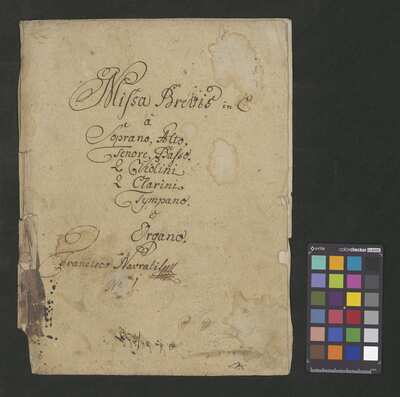 Missa Brevis in C
à
Soprano, Alto,
Tenore, Basso,
2 Violini
2 Clarini
Tympano.
è
Organo.
Francisco Navratil
x-rite
colorchecker